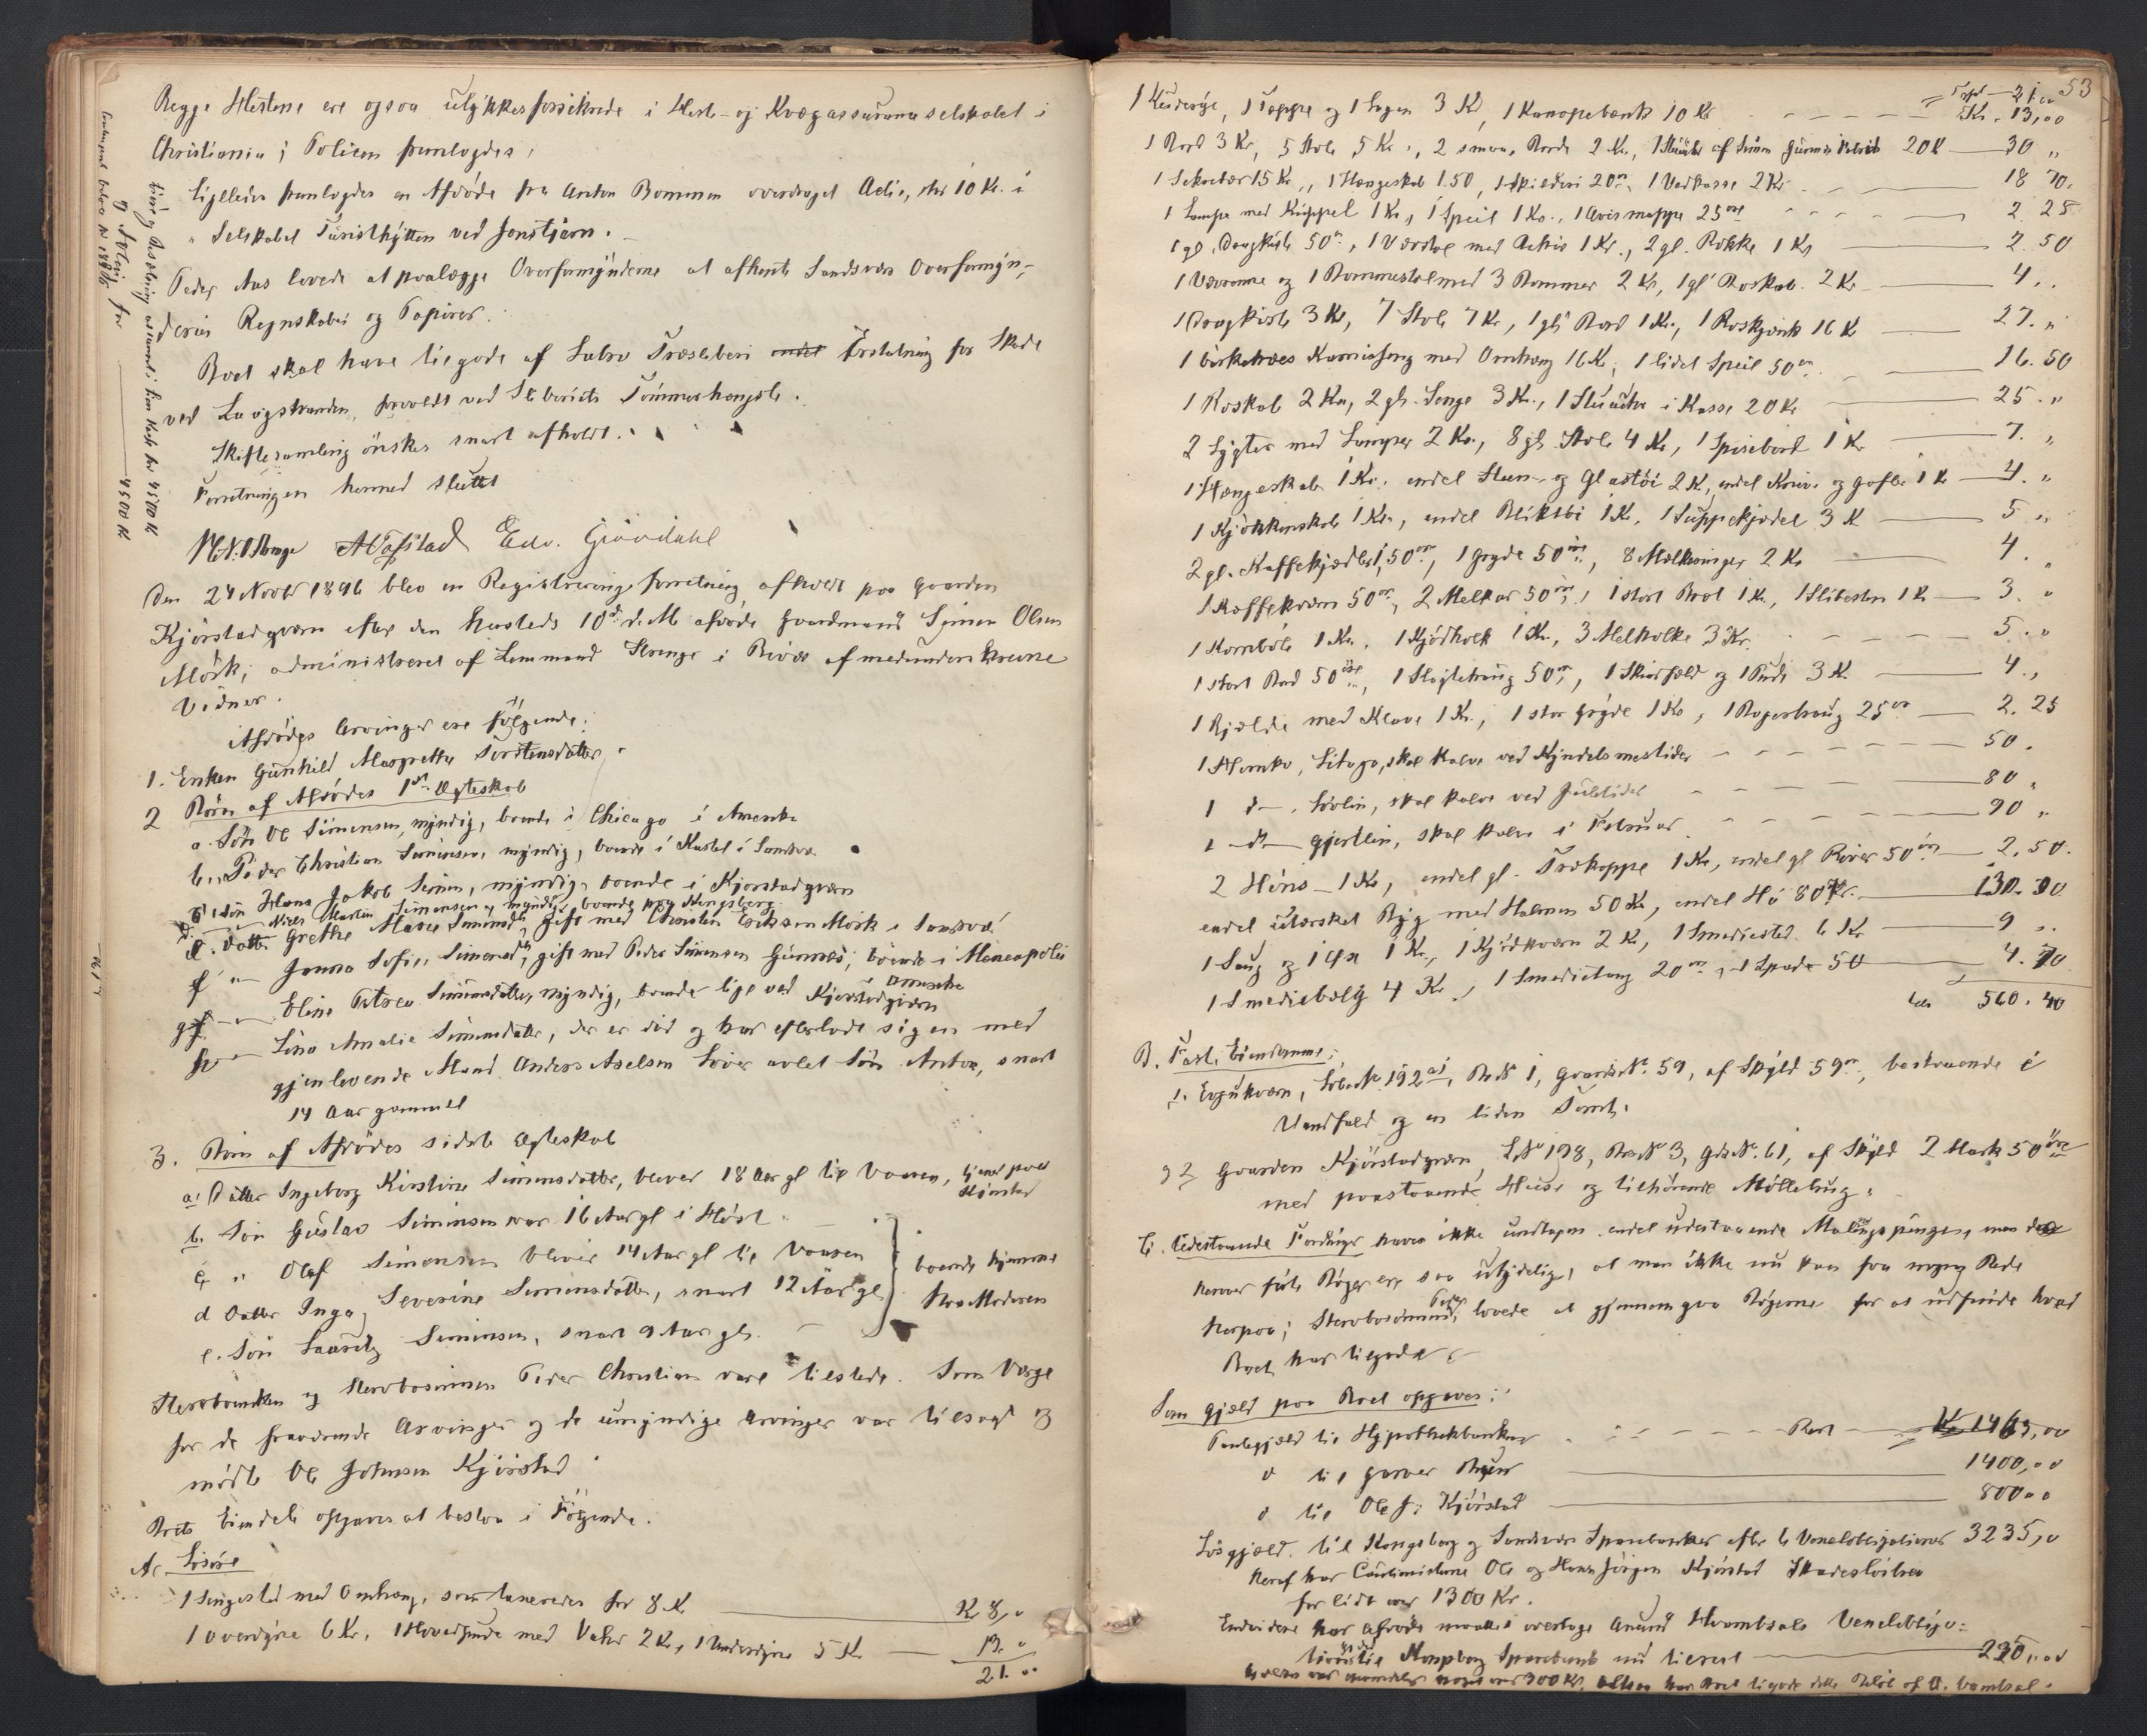 Begge Hestene ere ogsaa ulykkesforsikrede i Hest- og Kvægassuranceselskabet i
Christiania; Policen fremlagdes.
Ligeledes fremlagdes en Afdøde fra Anton Bommen overdraget Actie, stor 10 Kr. i
Selskabet Turisthytten ved Jonstjern.
Peder Aas lovede at paalægge Overformynderne at afhente Sandsvær Overformyn-
deries Regnskaber og Papirer.
Boet skal have tilgode af Labro Træsliberi endel Erstatning for Skade
ved Laagstranden, forvoldt ved Sliberiets Tømmerhengsle.
Skiftesamling ønskes snart afholdt.
Forretningen hermed sluttet
N. Strenge A Vafstad Edv. Gjørdahl
Den 24 Novbr 1896 blev en Registreringsforretning afholdt paa Gaarden
Kjørstadqværn efter den hersteds 10de d.M. afdøde Gaardmand Simen Olsen
Mørk, administreret af Lensmand Strenge i Bivær af medunderskrevne
Vidner.
Afdødes Arvinger ere Følgende:
1. Enken Gunhild Margrethe Torstensdatter
2 Børn af Afdødes 1ste Ægteskab
a. Søn Ole Simensen, myndig, boende i Chicago i Amerika
b. " Peder Christian Simensen, myndig, boende i Kastet i Sandsv.
c. Søn Hans Jakob Simen, myndig, boende i Kjørstadqværn
d. — Niels Martin Simensen, myndig, boende paa Kongsberg
e. Datter Grethe Marie Simensd., gift med Christen Eriksen Mørk i Sandsvær
f — Janna Sofie Simensd., gift med Peder Simensen Gunnes, boende i Mineapolis
i Amerika
g — Eline Petrea Simensdatter, myndig, boende lige ved Kjørstadqværn
h — Lina Amalie Simensdatter, der er død og har efterladt sig en med
gjenlevende Mand Anders Axelsen avlet Søn Anton, snart
14 Aar gammel
3. Børn af Afdødes sidste Ægteskab
a. Datter Ingeborg Kirstine Simensdatter, bliver 18 Aar gl til Vaaren, tjener paa
Kjørstad
b. Søn Gustav Simensen var 16 Aar gl i Høst
c " Olaf Simensen bliver 14 Aar gl til Vaaren
d Datter Inga Severine Simensdatter, snart 12 Aar gl
e. Søn Lauritz Simensen, snart 9 Aar gl.
boende hjemme
hos Moderen
Stervboenken og Stervbosønnen Peder Christian vare tilstede. Som Værge
for de fraværende Arvinger og de umyndige Arvinger var tilsagt og
mødte Ole Johnsen Kjørstad
Boets Eiendele opgaves at bestaa i Følgende.
A. Løsøre
1 Sengested med Omhæng, som taxeredes for 8 Kr — Kr 8,"
1 Overdyne 6 Kr, 1 Hovedpude med Vahr 2 Kr, 1 Underdyne 5 K — 13. "
21. "
tiender for
4500 Kr
53
Trspt — 21,00
1 Underdyne, 1 Teppe og 1 Lagen 3 Kr, 1 Kanapebænk 10 Kr — Kr. 13,00
1 Bord 3 Kr, 5 Stole 5 Kr., 2 smaa Borde 2 Kr, 20 Kr — 30 "
1 Sekretær 15 Kr, 1 Hængeskab 1.50, 1 Skilderi 20 ør, 1 Vedkasse 2 Kr — 18 70.
1 Lampe med Kuppel 1 Kr, 1 Speil 1 Kr., 1 Avismappe 25 øre — 2. 25
1 gl. Dragkiste 50 ør, 1 Vævstol med Behør 1 Kr., 2 gl. Rokke 1 Kr — 2. 50
1 og 1 Rammestol med 3 Rammer 2 Kr, 1 gl Roskab 2 Kr — 4. "
1 Dragkiste 3 Kr, 7 Stole 7 Kr, 1 gl Bord 1 Kr., 1 Roskjænk 16 Kr — 27. "
1 birketræs Kanieseng med Omhæng 16 Kr, 1 lidet Speil 50 ør — 16. 50
1 Roskab 2 Kr, 2 gl. Senge 3 Kr., 1 Stueuhr i Kasse 20 Kr — 25. "
2 Lygter med Lamper 2 Kr., 8 gl Stole 4 Kr, 1 Spisebord 1 Kr — 7. "
1 Hængeskab 1 Kr., endel Sten- og Glastøi 2 K, endel Knive og Gafle 1 K — 4. "
1 Kjøkkenskab 1 Kr., endel Bliktøi 1 K, 1 Suppekjedel 3 K — 5 "
2 gl. Kaffekjedler 1,50 ør, 1 Gryde 50 ør, 8 Melkeringer 2 Kr — 4. "
1 Kaffekværn 50 ør, 2 Melkar 50 ør, 1 stort Brot 1 K., 1 Slibesten 1 K — 3. "
1 Kornbøle 1 Kr., 1 Kjødholk 1 K., 3 Melholke 3 Kr — 5. "
1 stort Bord 50 øre, 1 Slagtetraug 50 ør, 1 Skindfæld og 1 Pude 3 K — 4. "
1 Bjelde med Klave 1 Kr., 1 stor Gryde 1 Kr, 1 Bagertraug 25 ør — 2. 25
1 Hornko, Litago, skal kalve ved Kyndelsmestider — 50.
1 d — Lovlin, skal kalve ved Juletider — 80 "
1 d — Gjertlin, skal kalve i Februar — 90 "
2 Høns — 1 Kr, endel gl. Trækoppe 1 Kr, endel gl River 50 ør — 2. 50.
endel utærsket Byg med Halmen 50 Kr, endel Hø 80 Kr. — 130. 00
1 Saug og 1 Øx 1 Kr., 1 Kjødkværn 2 K, 1 Smediested 6 Kr — 9 "
1 Smediebælg 4 Kr., 1 Smedietang 20 ør, 1 Spade 50 — 4. 70
Late 560. 40
B. Faste Eiendomme:
1. Evjukværn, Løbe No 192 a1, Br No 1, Gaards No. 59, af Skyld 59 ør, bestaaende i
Vandfald og en liden Tomt.
2 Gaarden Kjørstadqværn, LNo 198, Br No 3, Gds No. 61, af Skyld 2 Mark 50 øre
med paastaaende Huse og tilhørende Møllebrug.
C. Udestaaende Fordringer haves ikke undtagen endel udestaaende Malingspenge, men de
herover førte Bøger ere saa utydelige, at man ikke nu kan faa nogen Rede
herpaa; Stervbosønnen Peder lovede at gjennemgaa Bøgerne for at udfinde hvad
Boet har tilgode.
Som Gjæld paa Boet opgaves:
Pantegjæld til Hypothekbanken — Rest — Kr 1465,00
d til Garver — 1400,00
d til Ole J. Kjørstad — 800 00
Løsgjæld til Kongsberg og Sandsvær Sparebanker efter 6 Vexelobligationer 3235,0
heraf har Cautionisterne Ole og Hans Jørgen Kjørstad Skadesløsbrev
for lidt over 1300 Kr.
Endvidere har Afdøde maattet overtage Anund Hvambsals Vexelobliga-
tionsgjæld til Kongsberg Sparebank nu tilrest — 230,00